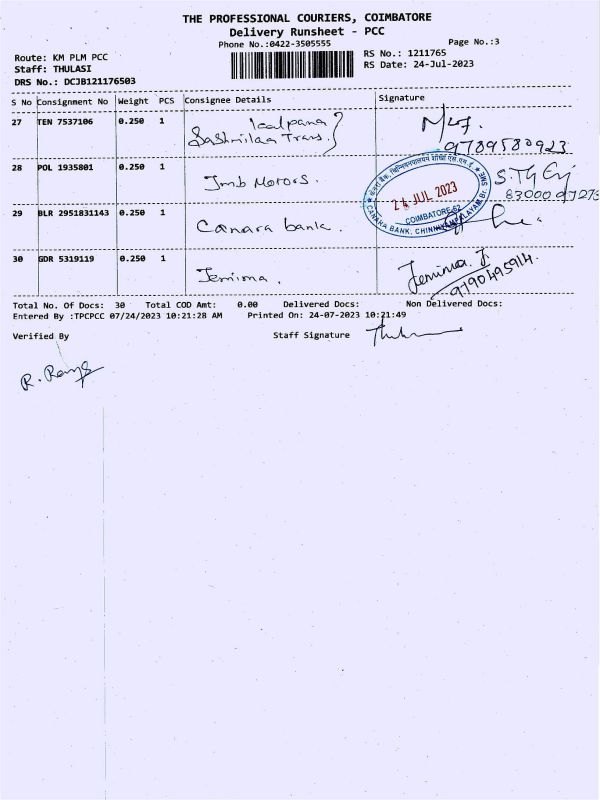 THE PROFESSIONAL COURIERS, COIMBATORE
Delivery Runsheet - PCC
Phone No.:0422-3505555
Page No.:3
Route: KM PLM PCC
Staff: THULASI
DRS No.: DCJB121176503
RS No.: 1211765
RS Date: 24-Jul-2023
S No Consignment No Weight PCS Consignee Details Signature
27 TEN 7537106 0.250 1 kalpana
Trans.
9789580923
28 POL 1935801 0.250 1 Jmb Motors.
24 JUL 2023
COIMBATORE-62
29 BLR 2951831143 0.250 1 Canara bank.
30 GDR 5319119 0.250 1 Jemima. Jemima J.
9790495914.
Total No. Of Docs: 30 Total COD Amt: 0.00 Delivered Docs: Non Delivered Docs:
Entered By :TPCPCC 07/24/2023 10:21:28 AM Printed On: 24-07-2023 10:21:49
Verified By Staff Signature